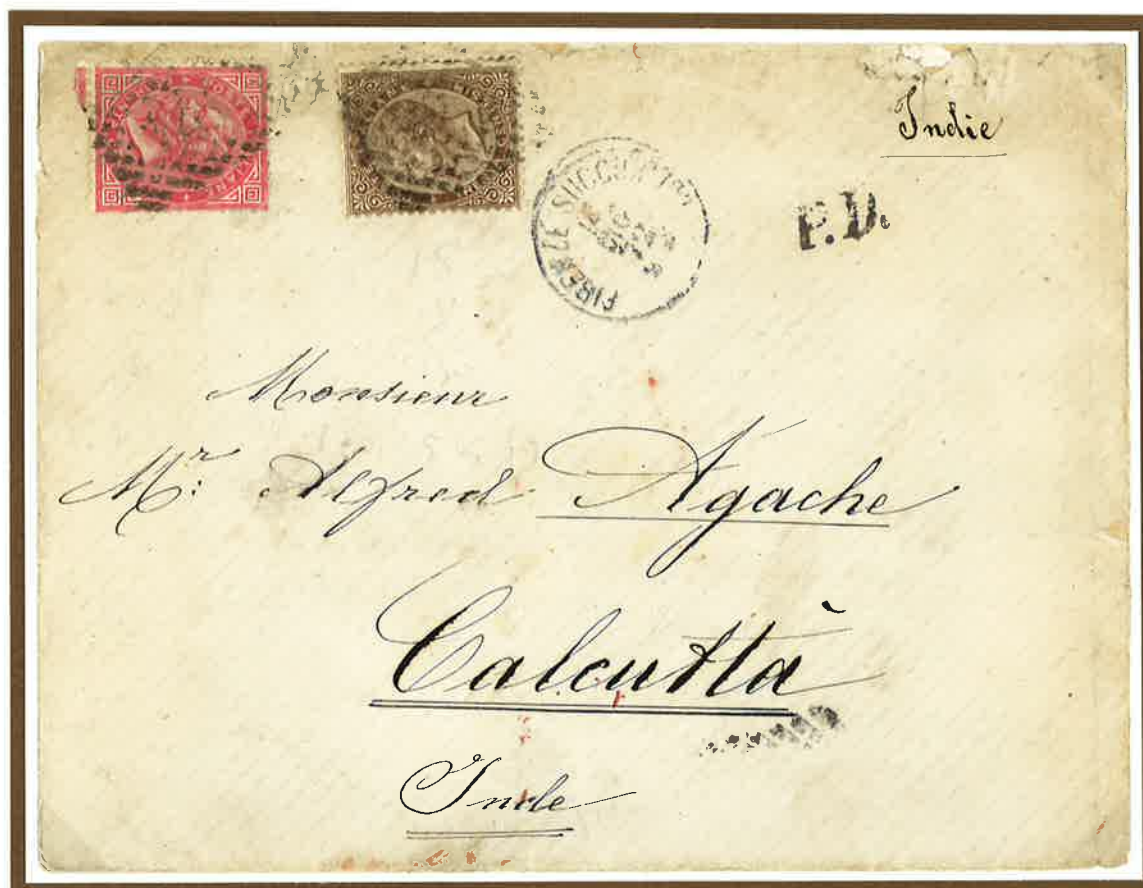 Indie
P.D.
FIRENZE SUCCUR
Monsieur
Mr: Alfred Agache
Calcuttà
Inde